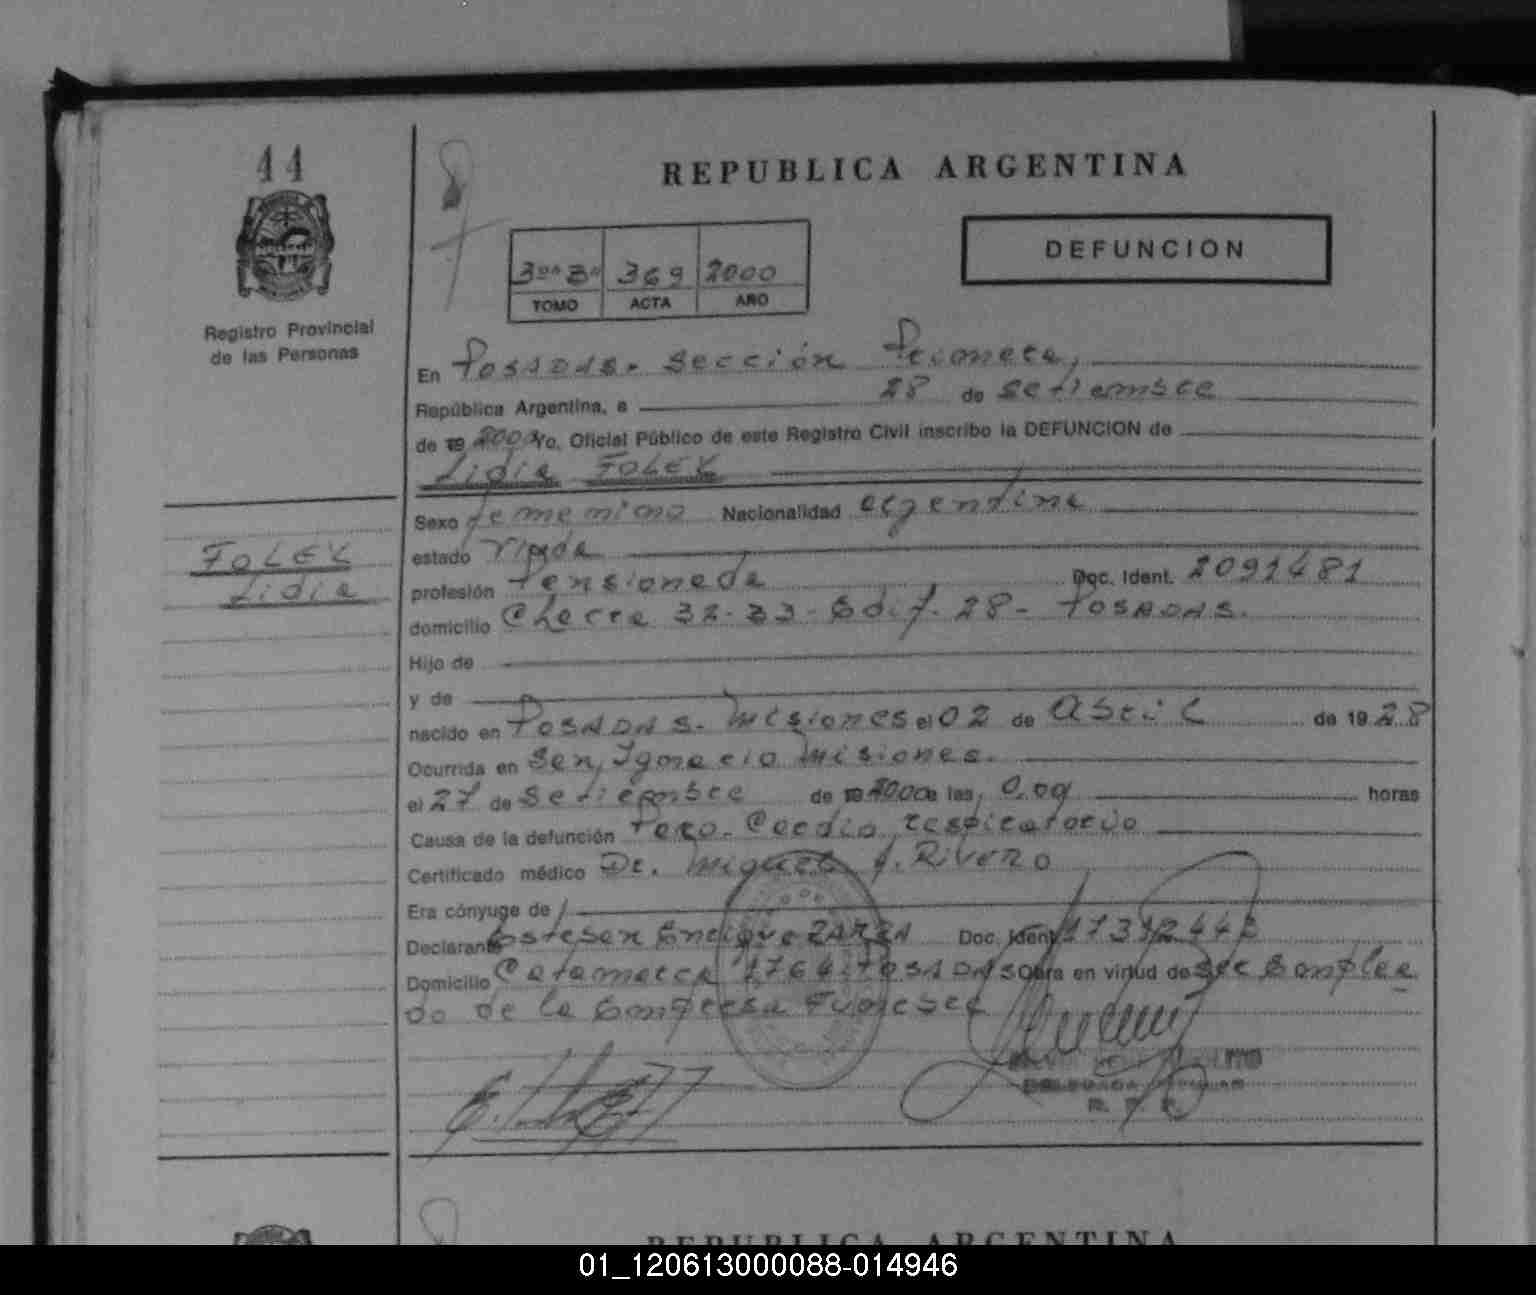 44
REPUBLICA ARGENTINA
DEFUNCION
369 2000
TOMO ACTA AÑO
Registro Provincial
de las Personas
En Posadas. Sección Primera,
República Argentina, a 28 de Setiembre
de 19 2000 Yo, Oficial Público de este Registro Civil inscribo la DEFUNCION de
Lidia FOLEY
Sexo femenino Nacionalidad argentina
FOLEY
Lidia
estado viuda
profesión Pensionada Doc. Ident. 2091481
domicilio Chacra 32-33-Edif. 28- Posadas.
Hijo de
y de
nacido en Posadas. Misiones el 02 de Abril de 19 28
Ocurrida en San Ignacio Misiones.
el 27 de Setiembre de 19 2000 a las, 0,09 horas
Causa de la defunción Paro. Cardio respiratorio
Certificado médico Dr. Miguel A. Rivero
Era cónyuge de
Declarante Esteban Enrique ZARZA Doc. Ident.
Domicilio Catamarca 1764 Posadas Obra en virtud de ser Emplea
do de la Empresa Funebre
REPUBLICA ARGENTINA
01_120613000088-014946